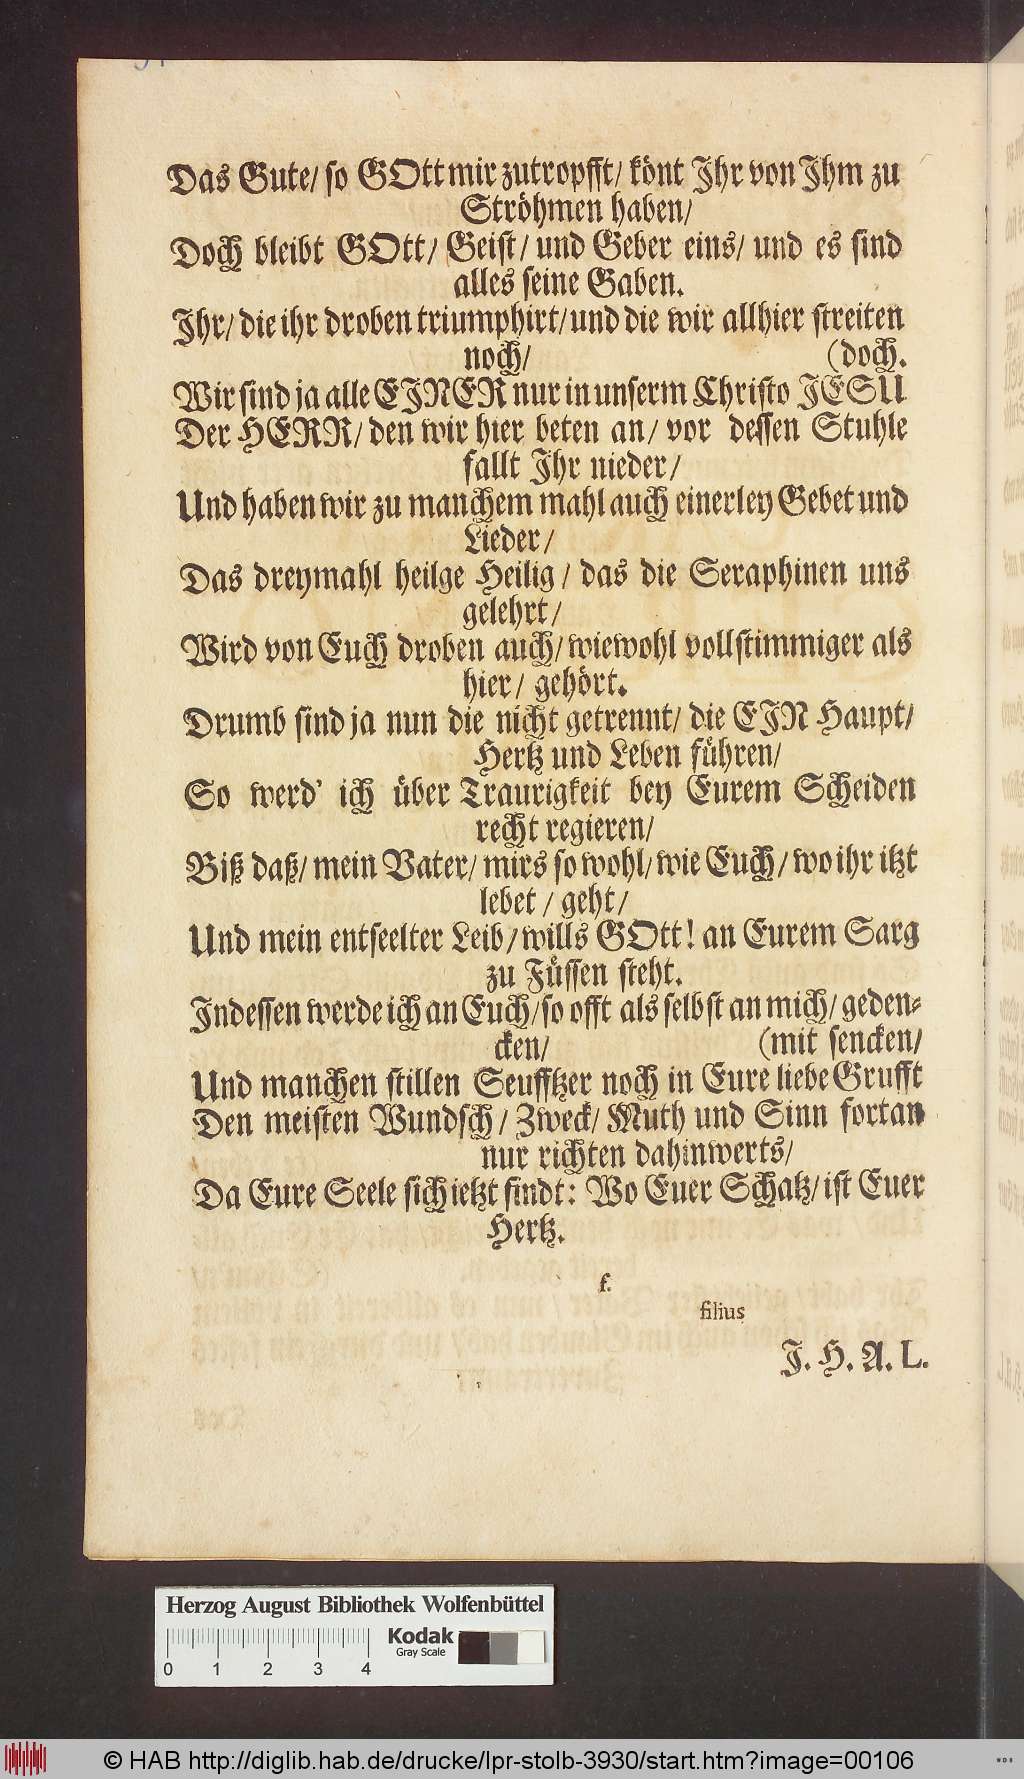 Das Gute/ so GOtt mir zutropfft/ könt Ihr von Ihm zu
Ströhmen haben/
Doch bleibt GOtt/ Geist/ und Geber eins/ und es sind
alles seine Gaben.
Ihr/ die ihr droben triumphirt/ und die wir allhier streiten
noch/ (doch.
Wir sind ja alle EINER nur in unserm Christo JESU
Der HERR/ den wir hier beten an/ vor dessen Stuhle
fallt Ihr nieder/
Und haben wir zu manchem mahl auch einerley Gebet und
Lieder/
Das dreymahl heilge Heilig/ das die Seraphinen uns
gelehrt/
Wird von Euch droben auch/ wiewohl vollstimmiger als
hier/ gehört.
Drumb sind ja nun die nicht getrennt/ die EIN Haupt/
Hertz und Leben führen/
So werd' ich über Traurigkeit bey Eurem Scheiden
recht regieren/
Biß daß/ mein Vater/ mirs so wohl/ wie Euch/ wo ihr itzt
lebet/ geht/
Und mein entseelter Leib/ wills GOtt! an Eurem Sarg
zu Füssen steht.
Indessen werde ich an Euch/ so offt als selbst an mich/ geden-
cken/ (mit sencken/
Und manchen stillen Seufftzer noch in Eure liebe Grufft
Den meisten Wundsch/ Zweck/ Muth und Sinn fortan
nur richten dahinwerts/
Da Eure Seele sich ietzt findt: Wo Euer Schatz/ ist Euer
Hertz.
f.
filius
J. H. A. L.
Herzog August Bibliothek Wolfenbüttel
Kodak
Gray Scale
0 1 2 3 4
© HAB http://diglib.hab.de/drucke/lpr-stolb-3930/start.htm?image=00106